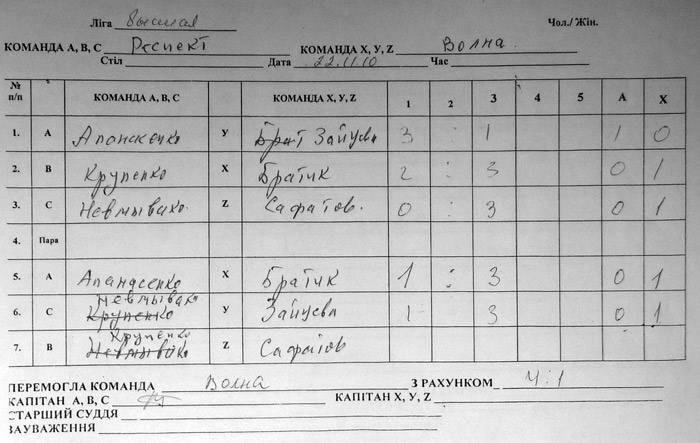 Ліга Высшая Чол./ Жін.
КОМАНДА A, B, C Респект КОМАНДА X, У, Z Волна
Стіл Дата 22.11.10 Час
№ п/п КОМАНДА A, B, C КОМАНДА X, У, Z 1 2 3 4 5 A X
1. A Апанасенко У Брат Зайцева 3 : 1 1 0
2. B Крупенко X Братик 2 : 3 0 1
3. C Невмывако Z Сафатов. 0 : 3 0 1
4. Пара
5. A Апанасенко X Братик 1 : 3 0 1
Невмывако
6. C Крупенко У Зайцева 1 3 0 1
Крупенко
7. B Невмывако Z Сафатов
ПЕРЕМОГЛА КОМАНДА Волна З РАХУНКОМ 4:1
КАПІТАН A, B, C КАПІТАН X, У, Z
СТАРШИЙ СУДДЯ
ЗАУВАЖЕННЯ